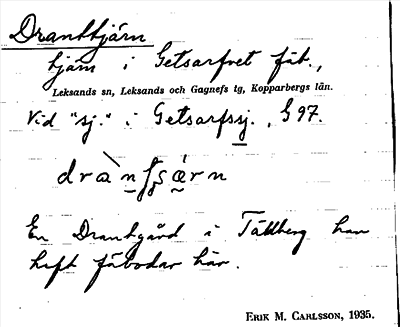 Dranttjärn
tjärn i Getsarfvet fäb.,
Leksands sn, Leksands och Gagnefs tg, Kopparbergs län.
Vid "sj." i Getsarfssj., G 97.
En Drantgård i Tällberg han
haft fäbodar här.
ERIK M. CARLSSON, 1935.